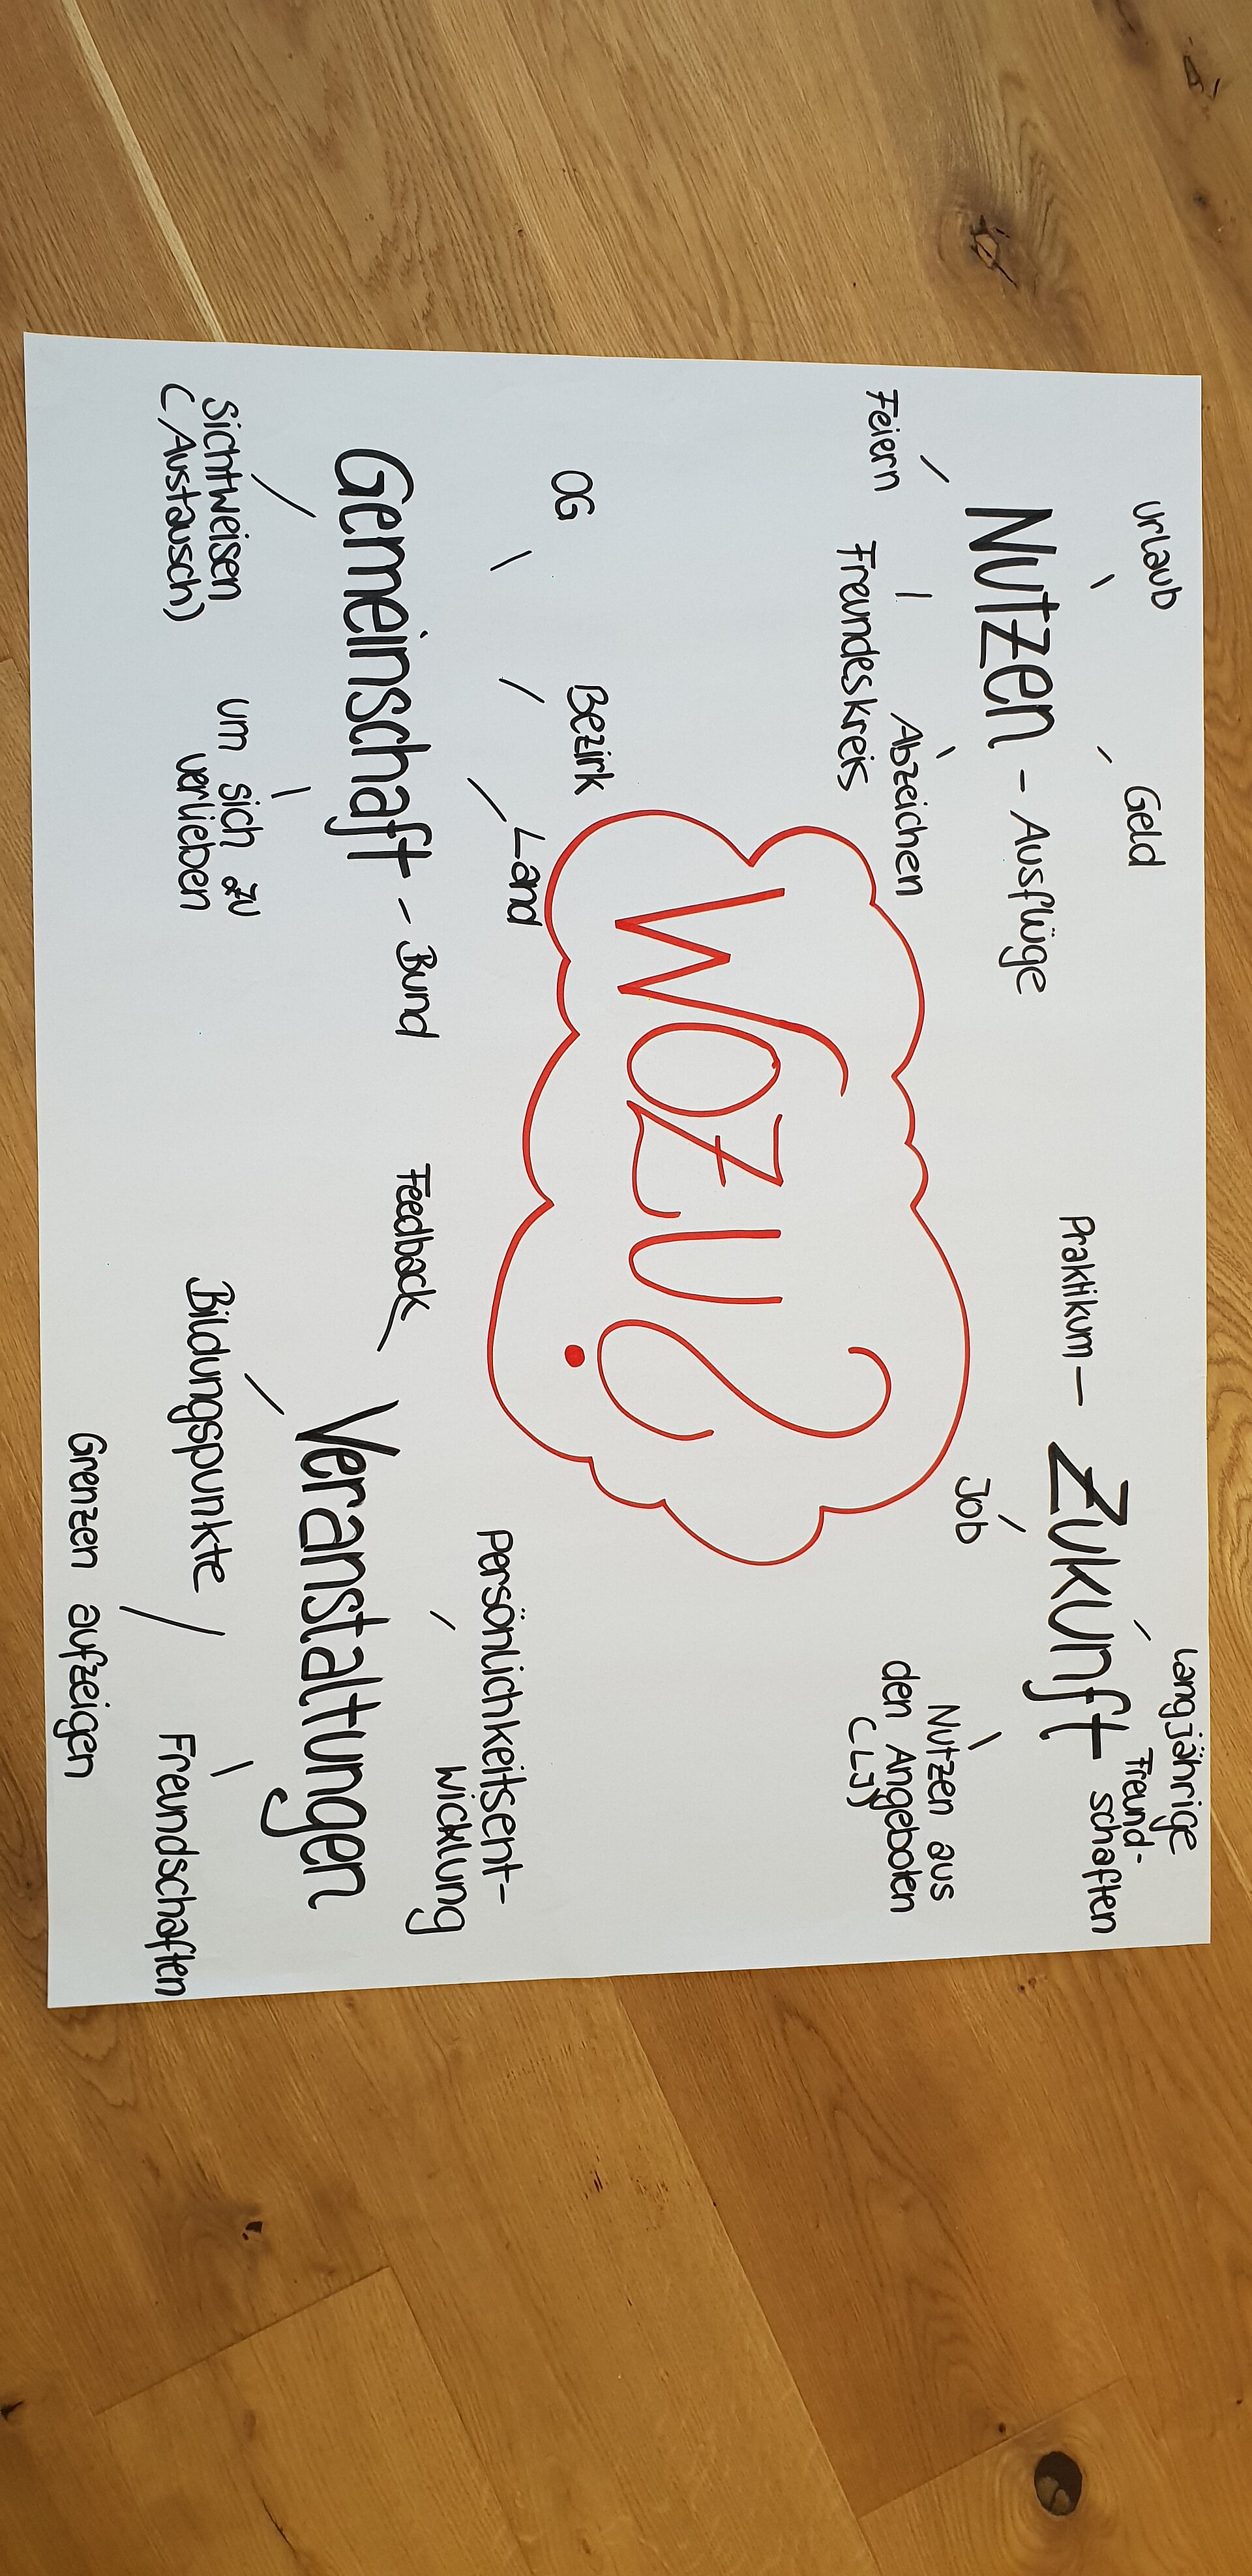 Urlaub
Geld
Nutzen - Ausflüge
Feiern
Freundeskreis
Abzeichen
Praktikum - Zukunft
Langjährige
Freund-
schaften
Job
Nutzen aus
den Angeboten
(LJ)
WOZU?
OG
Bezirk
Land
Gemeinschaft - Bund
Sichtweisen
(Austausch)
um sich zu
verlieben
Feedback
Persönlichkeitsent-
wicklung
Veranstaltungen
Bildungspunkte
Freundschaften
Grenzen aufzeigen